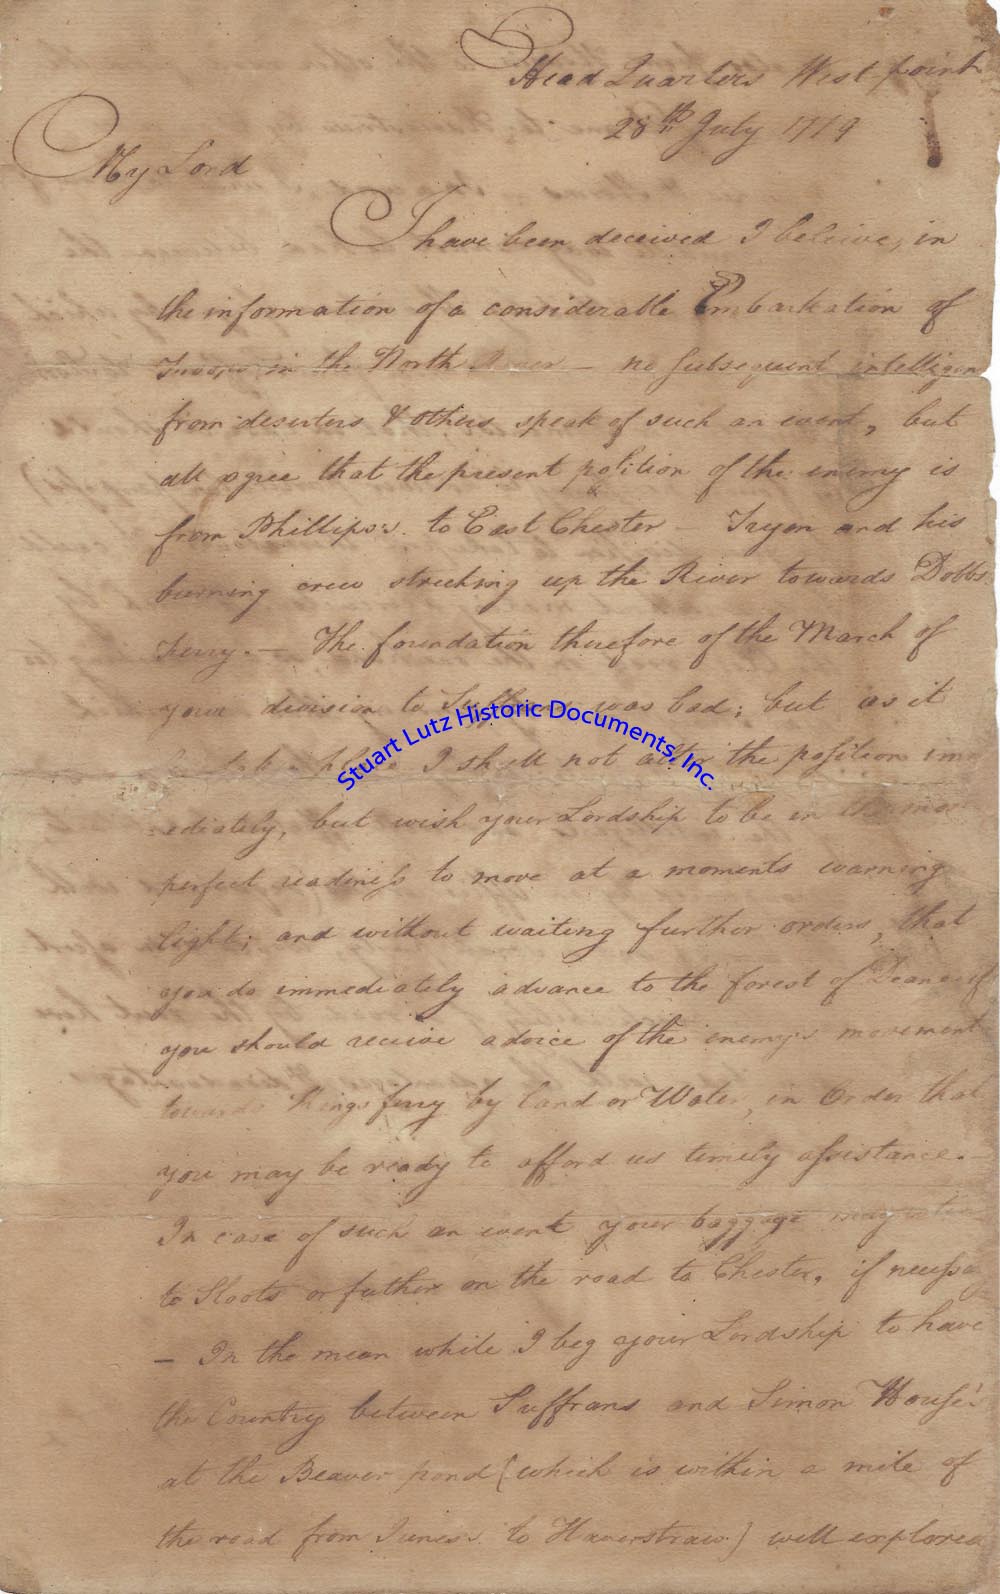 Head Quarters West point
28th July 1779
My Lord
I have been deceived I beleive, in
the information of a considerable Embarkation of
Troops in the North River — no subsequent intelligen
from deserters & others speak of such an event, but
all agree that the present position of the enemy is
from Phillips's to East Chester — Tryon and his
burning crew streching up the River towards Dobbs
Ferry. — The foundation therefore of the March of
your division to Suffrans was bad; but as it
I shall not alter the position im
ediately, but wish your Lordship to be in the most
perfect readiness to move at a moments warning
light; and without waiting further orders, that
you do immediately advance to the forest of Dean if
you should receive advice of the enemy's movement
towards Kings ferry by land or Water, in Order that
you may be ready to afford us timely assistance. —
In case of such an event your baggage may
to Sloots or futher on the road to Chester, if necessa
— In the mean while I beg your Lordship to have
the Country between Suffrans and Simon House's
at the Beaver pond (which is within a mile of
the road from Junes's to Haverstraw) well explored
Stuart Lutz Historic Documents, Inc.